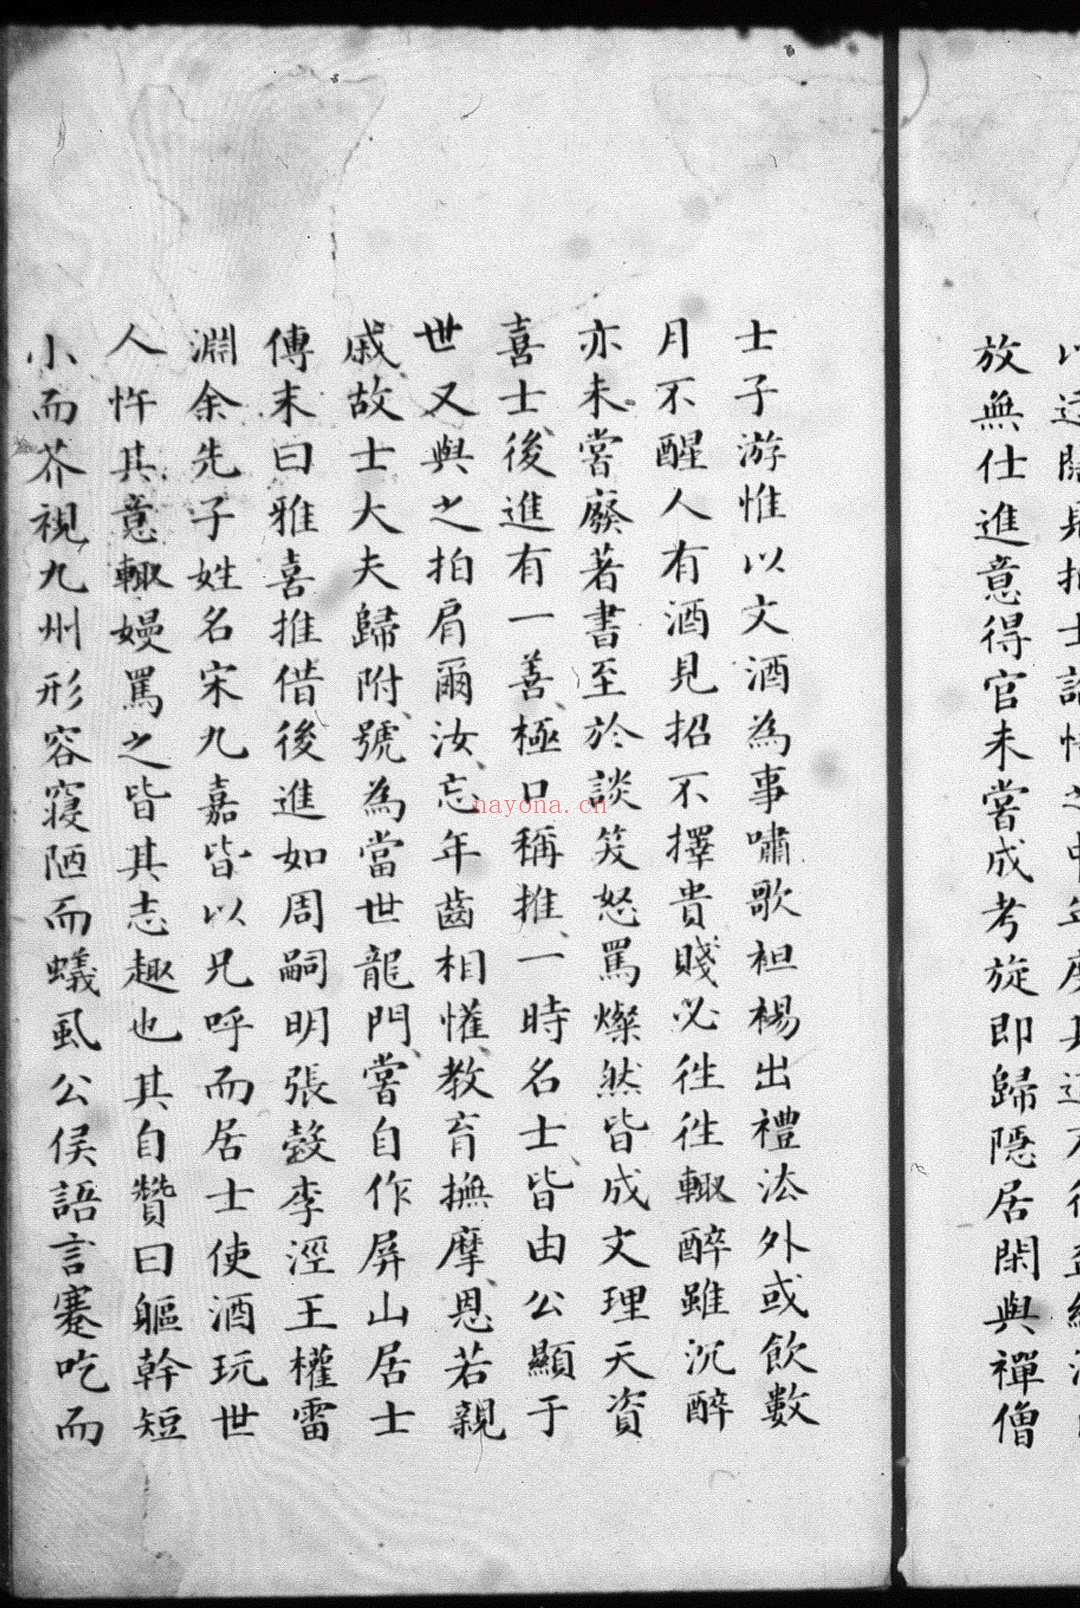 放無仕進意得官未嘗成考旋即歸隱居閑與禪僧
士子游惟以文酒為事嘯歌袒裼出禮法外或飲數
月不醒人有酒見招不擇貴賤必徃徃輙醉雖沉醉
亦未嘗廢著書至於談笑怒罵燦然皆成文理天資
喜士後進有一善極口稱推一時名士皆由公顯于
世又與之拍肩爾汝忘年齒相懽教育撫摩恩若親
戚故士大夫歸附號為當世龍門嘗自作屏山居士
傳末曰雅喜推借後進如周嗣明張瑴李涇王權雷
淵余先子姓名宋九嘉皆以兄呼而居士使酒玩世
人忤其意輙嫚罵之皆其志趣也其自贊曰軀幹短
小而芥視九州形容寢陋而蟻虱公侯語言蹇吃而
nayona.cn